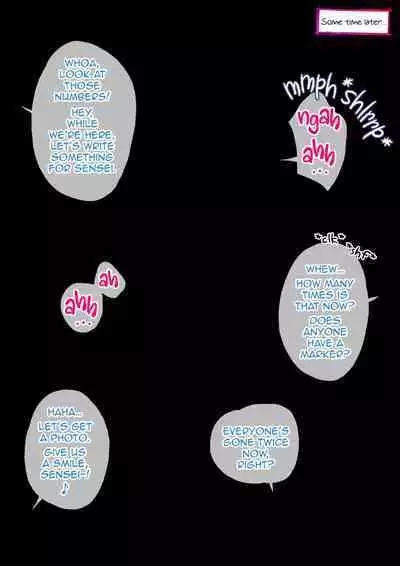 Some time later...
WHOA,
LOOK AT
THOSE
NUMBERS!
HEY,
WHILE
WE'RE HERE,
LET'S WRITE
SOMETHING
FOR SENSEI.
mmph *shlrpp*
ngah
ahh
...
*clk*
*shf*
WHEW...
HOW MANY
TIMES IS
THAT NOW?
DOES
ANYONE
HAVE A
MARKER?
ah
ahh
...
HAHA...
LET'S GET
A PHOTO.
GIVE US
A SMILE,
SENSEI~!
♪
EVERYONE'S
GONE TWICE
NOW,
RIGHT?